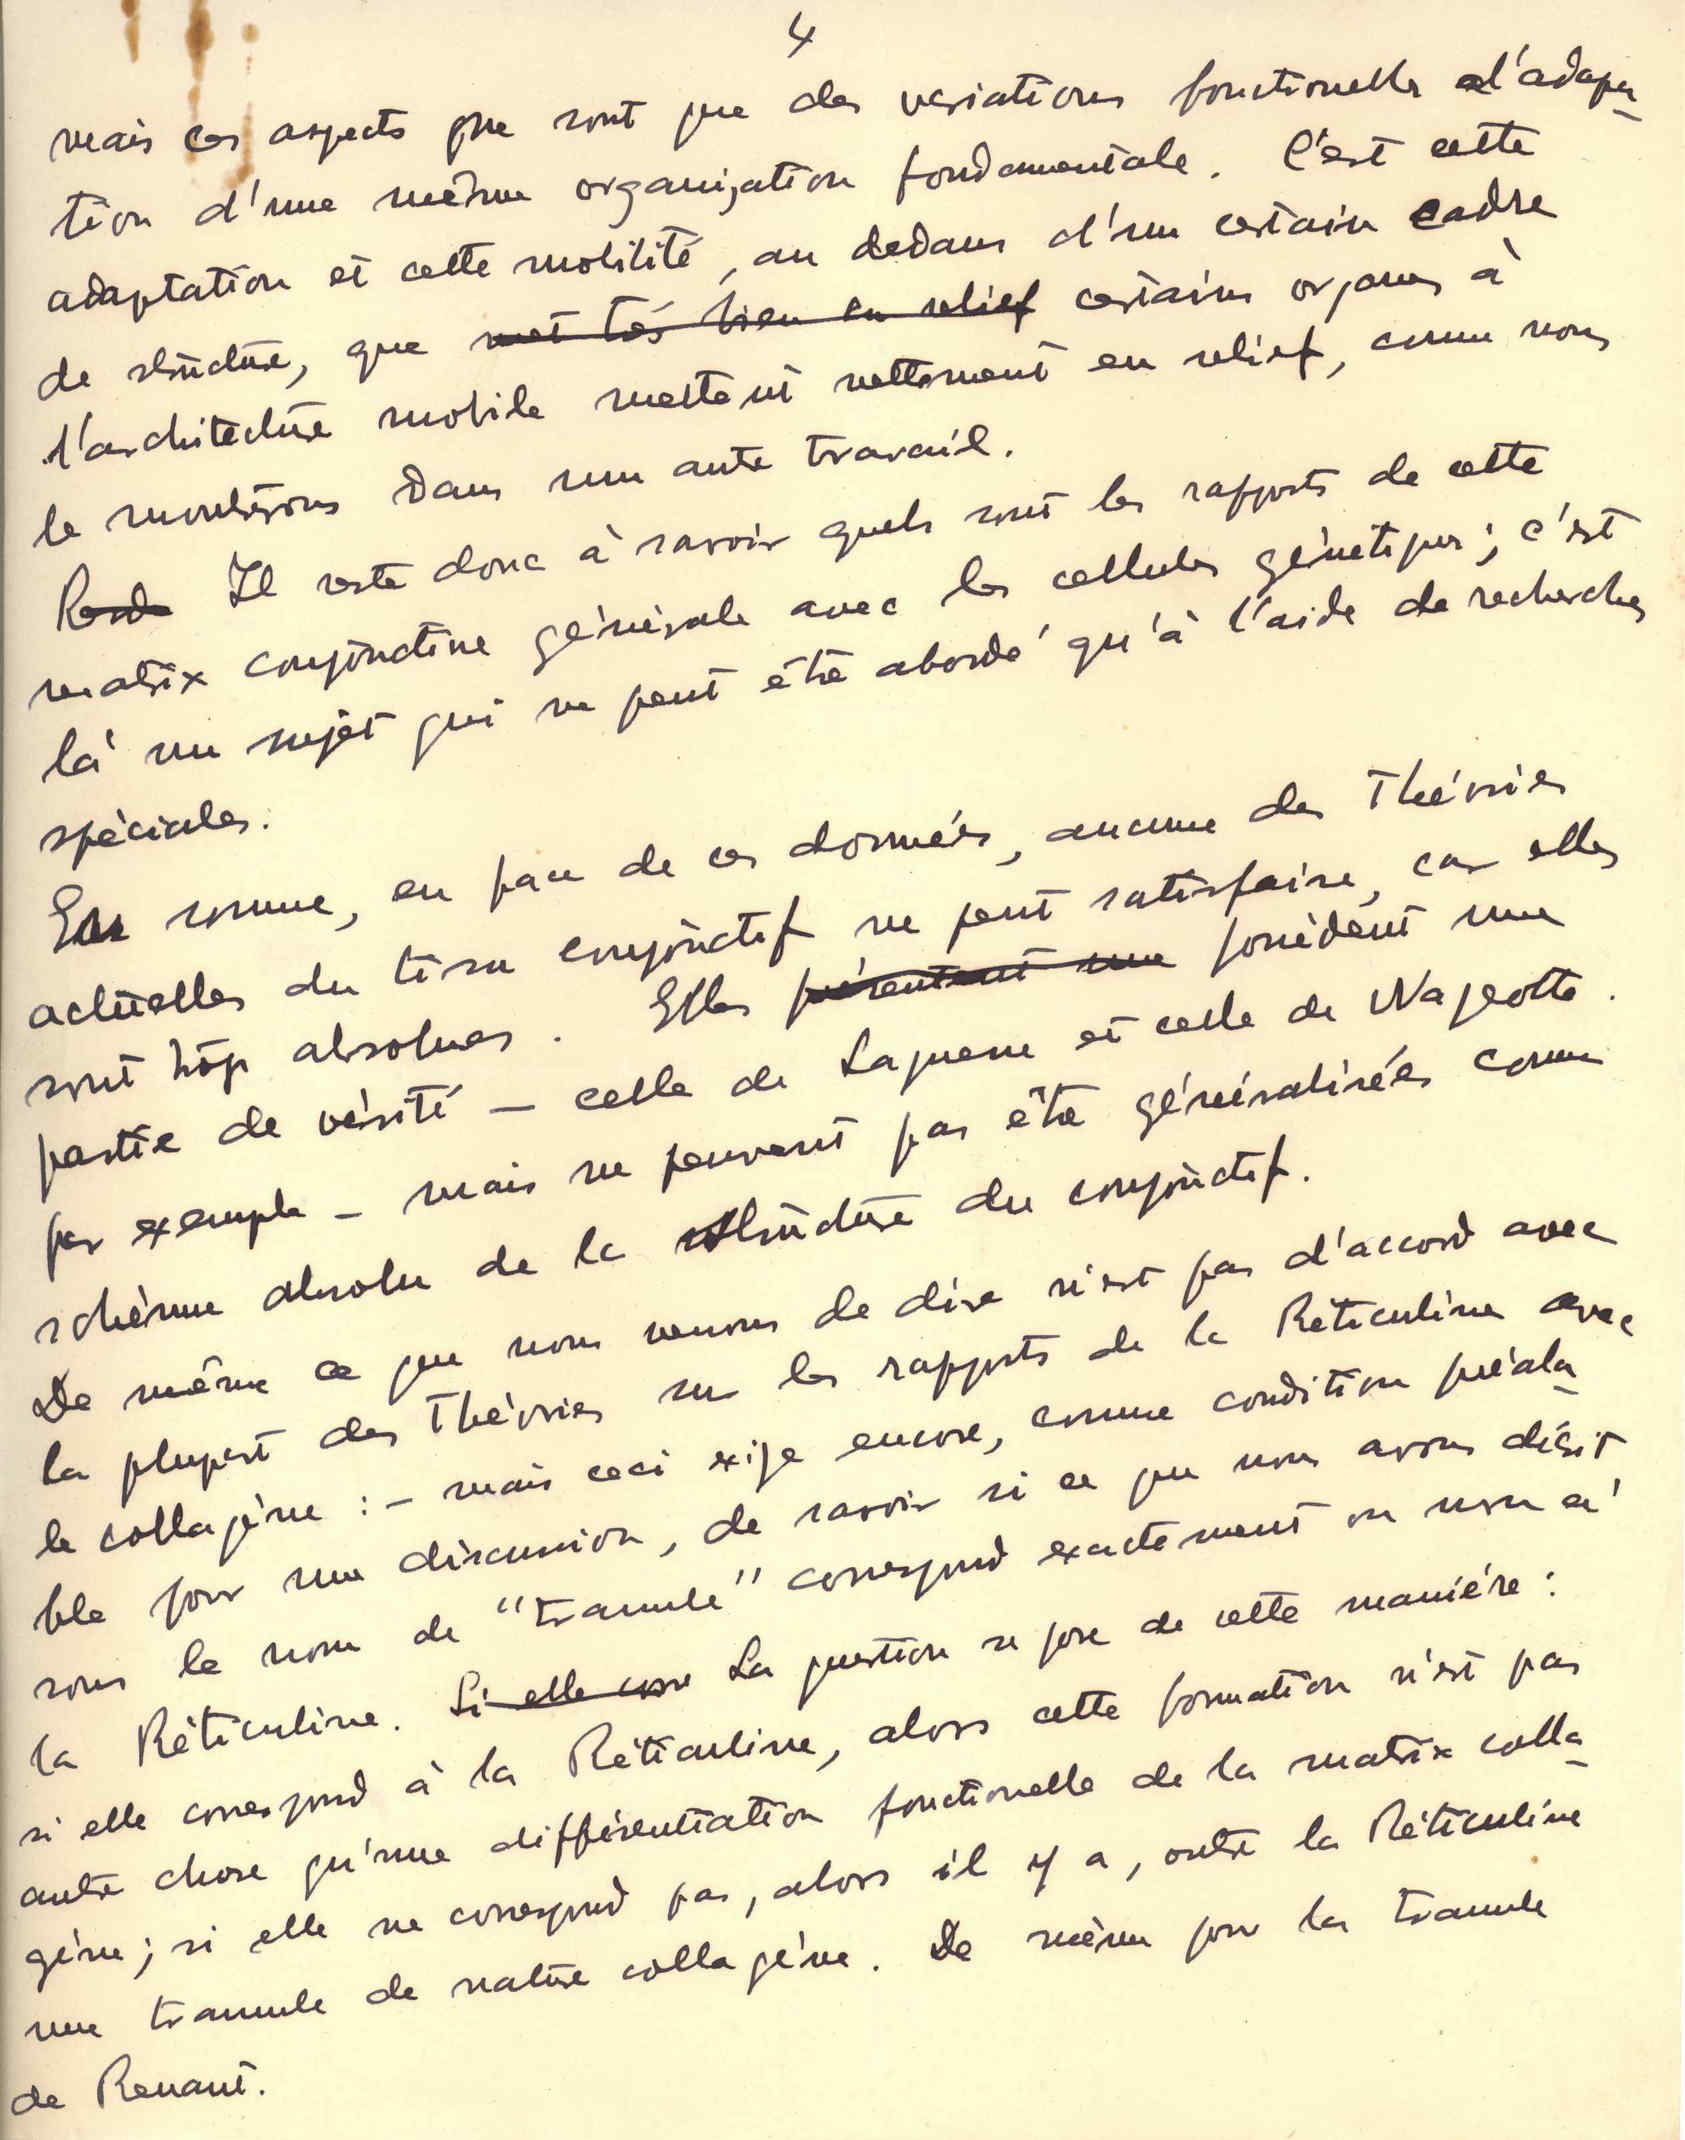 4
mais ces aspects ne sont que des variations fonctionelles d'adapta-
tion d'une même organisation fondamentale. C'est cette
adaptation et cette mobilité, au dedans d'un certain cadre
de structure, que met très bien en relief certains organes à
l'architecture mobile mettent nettement en relief, comme nous
le montrerons dans une autre travail.
Il reste donc à savoir quels sont les rapports de cette
matrix conjonctive générale avec les cellules génétiques; c'est
là un sujet qui ne peut être abordé qu'à l'aide de recherches
spéciales.
En somme, en face de ces données, aucune des théories
actuelles du tissu conjonctif ne peut satisfaire, car elles
sont trop absolues. Elles présentent une possèdent une
partie de vérité – celle de Laguesse et celle de Nageotte.
par exemple – mais ne peuvent pas être généralisées comme
schème absolu de la structure du conjonctif.
De même ce que nous venons de dire n'est pas d'accord avec
la plupart des théories sur les rapports de la Réticuline avec
le collagène : – mais ceci exige encore, comme condition préala-
ble pour une discussion, de savoir si ce que nous avons décrit
sous le nom de "tramule" correspond exactement ou non à
la Réticuline. Si elle corre La question se pose de cette manière :
si elle correspond à la Réticuline, alors cette formation n'est pas
autre chose qu'une différentiation fonctionelle de la matrix colla-
gène; si elle ne correspond pas, alors il y a, outre la Réticuline
une tramule de nature collagène. De même pour la tramule
de Renaut.